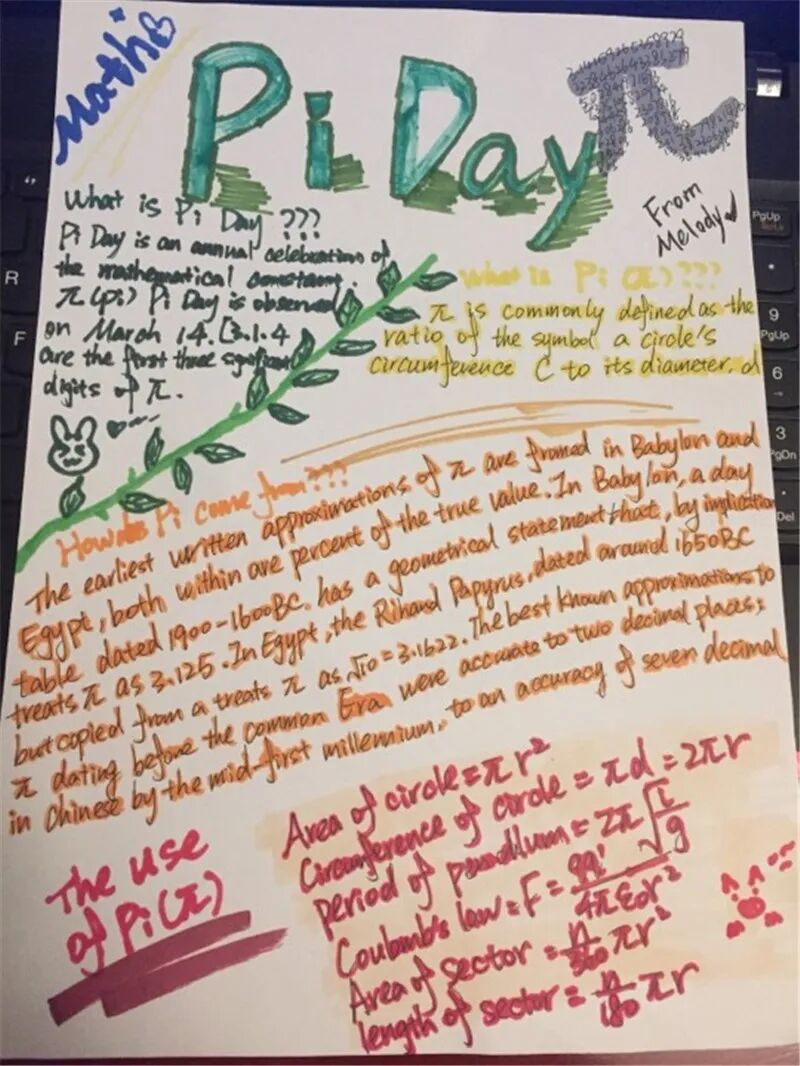 Maths
Pi Day π
From
Melody
What is Pi Day ???
Pi Day is an annual celebration of
the mathematical constant.
π (pi) Pi Day is observed
on March 14. [3.1.4
are the first three significant
digits of π.
What is Pi (π) ???
π is commonly defined as the
ratio of the symbol a circle's
circumference C to its diameter, d
How does Pi come from???
The earliest written approximations of π are framed in Babylon and
Egypt, both within one percent of the true value. In Babylon, a day
table dated 1900-1600BC. has a geometrical statement that, by implication
treats π as 3.125. In Egypt, the Rihand Papyrus, dated around 1650BC
but copied from a treats π as √10 = 3.1622. The best known approximations to
π dating before the common Era were accurate to two decimal places;
in Chinese by the mid-first millennium, to an accuracy of seven decimal
The use
of Pi (π)
Area of circle = πr²
Circumference of circle = πd = 2πr
period of pendulum = 2π√(L/g)
Coulomb's law = F = qq'/4πε₀r²
Area of sector = n/360 πr²
length of sector = n/180 πr
R
F
PgUp
9
PgUp
6
3
PgOn
Del